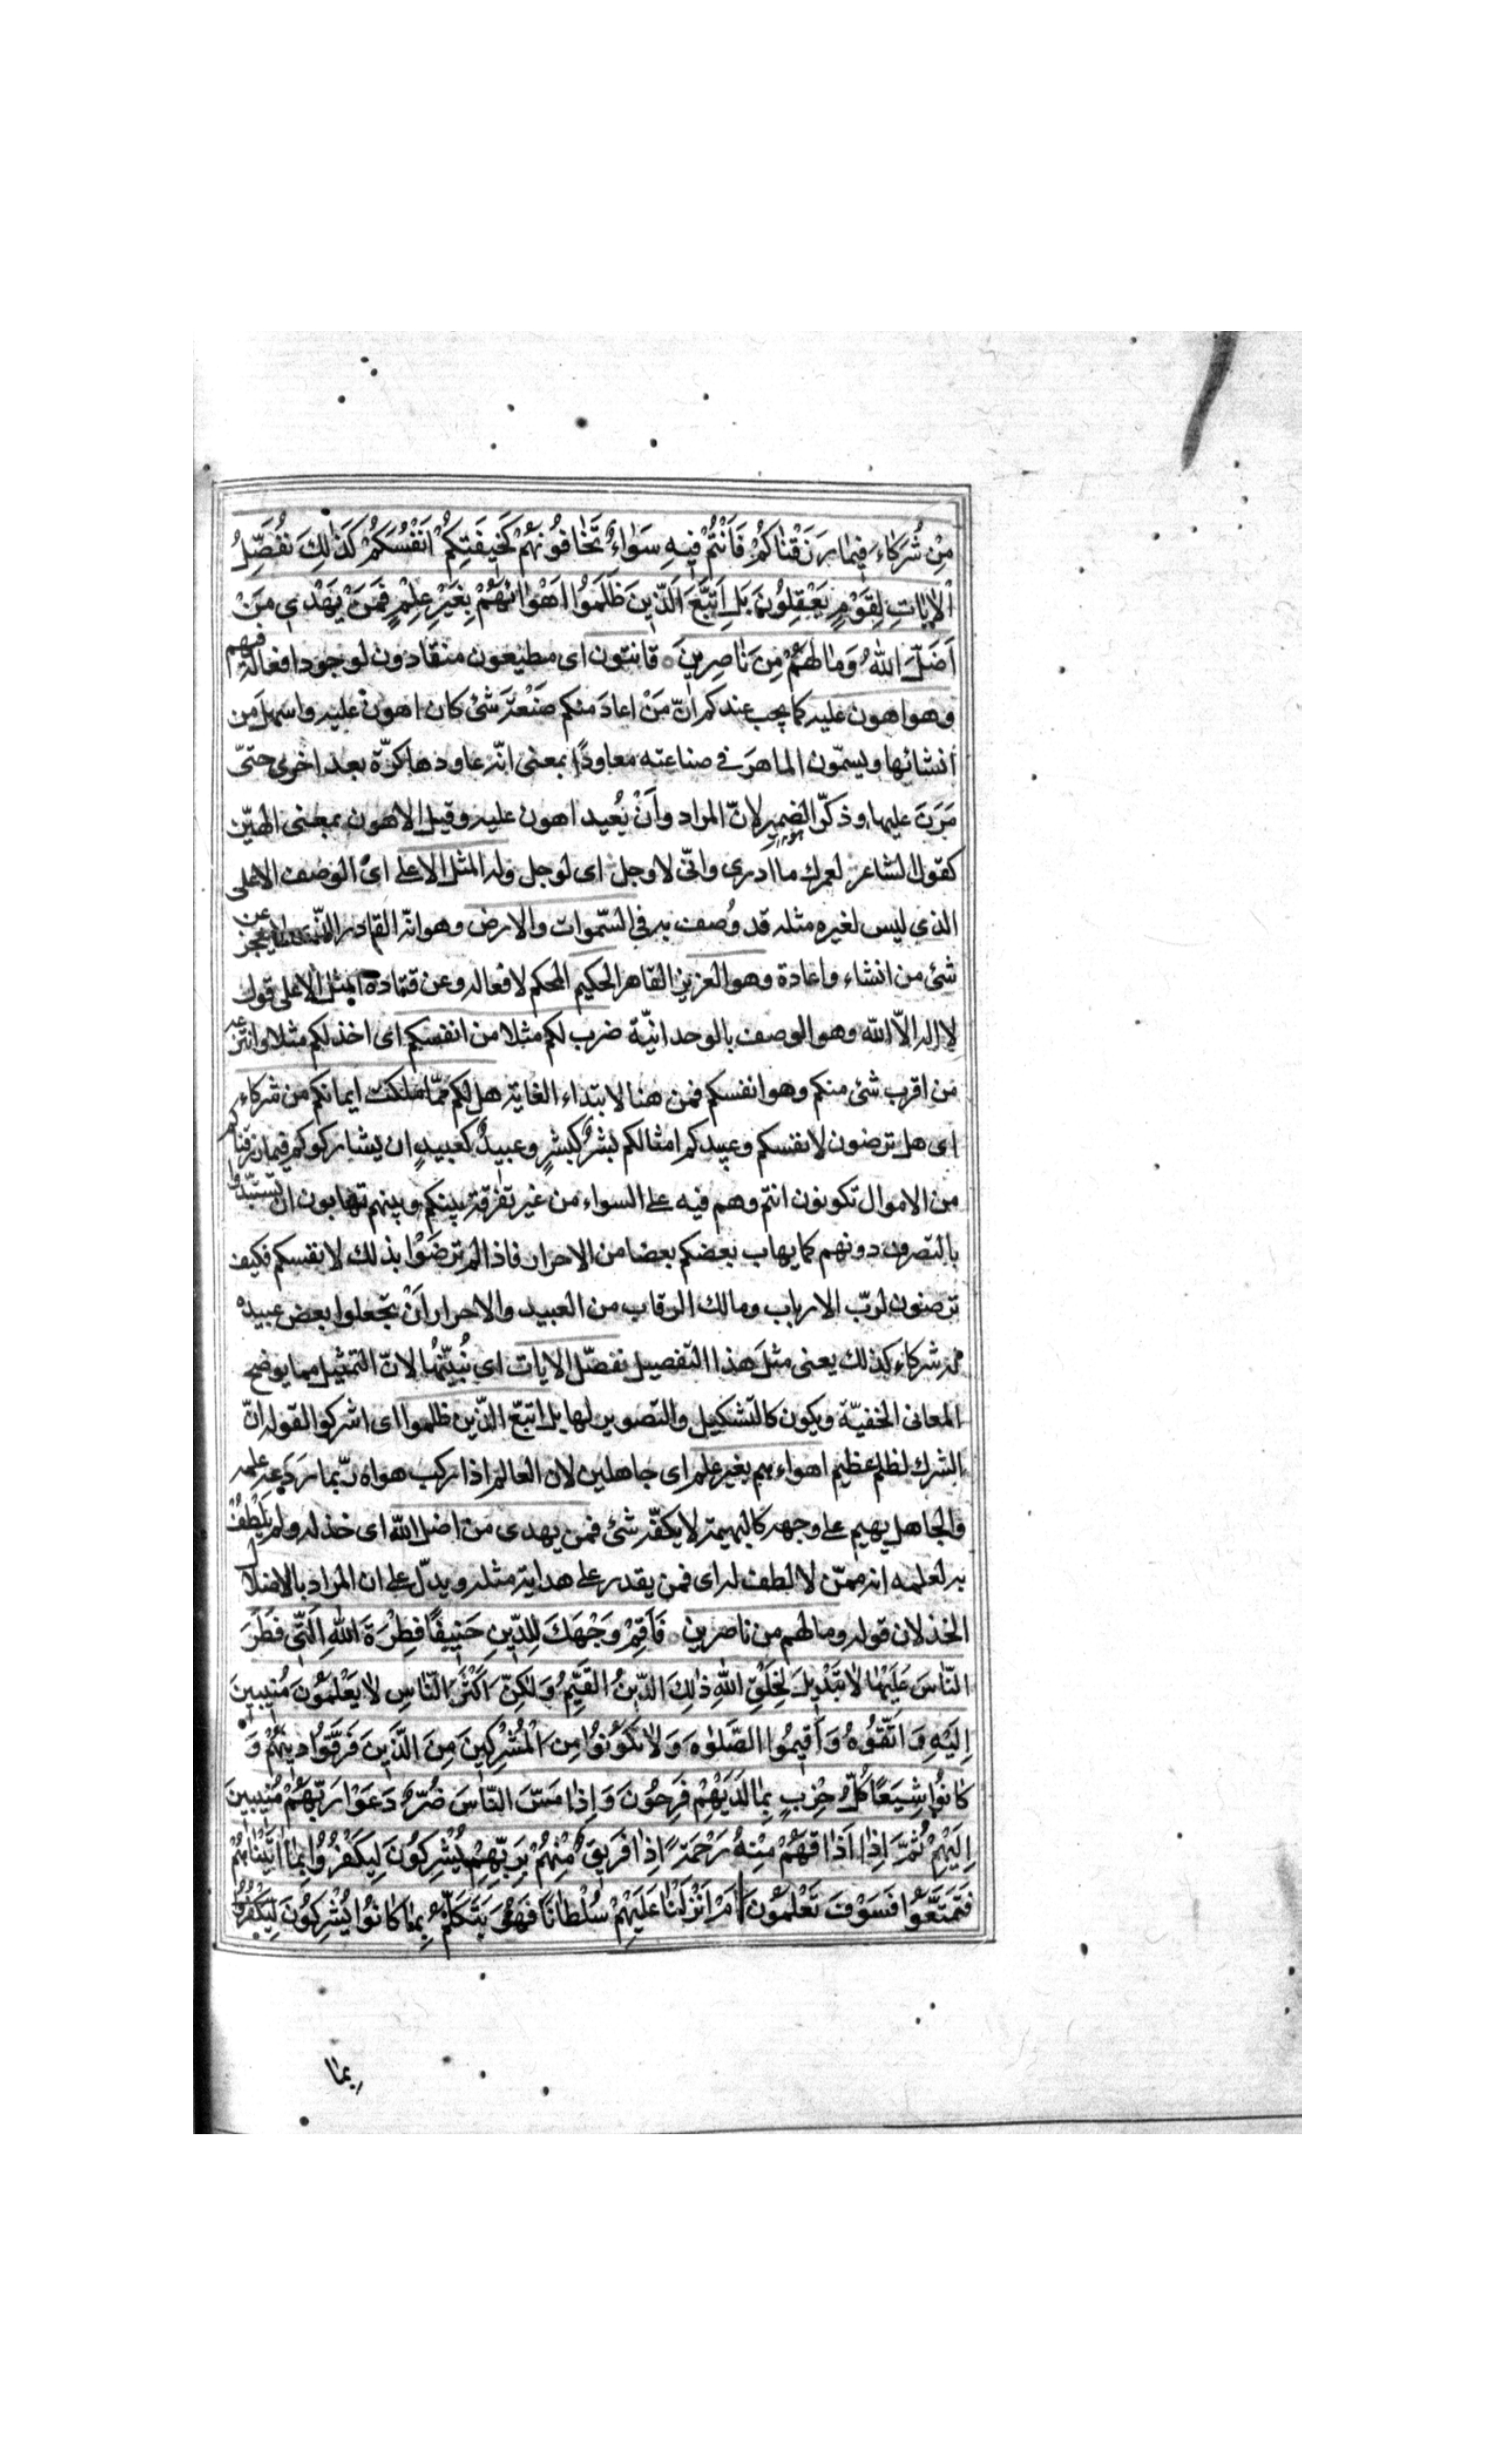 مِنْ شُرَكَاءَ فِيمَا رَزَقْنَاكُمْ فَأَنْتُمْ فِيهِ سَوَاءٌ تَخَافُونَهُمْ كَخِيفَتِكُمْ اَنْفُسَكُمْ كَذٰلِكَ نُفَصِّلُ
الْاٰيَاتِ لِقَوْمٍ يَعْقِلُونَ بَلِ اتَّبَعَ الَّذِينَ ظَلَمُوا اَهْوَائَهُمْ بِغَيْرِ عِلْمٍ فَمَنْ يَهْدِي مَنْ
اَضَلَّ اللّٰهُ وَمَا لَهُمْ مِنْ نَاصِرِينَ ○ قانتون اى مطيعون منقادون لوجود افعاله فيهم
وهو اهون عليه كما يجب عندكم انّ مَنْ اعادَ منكم صَنْعَةَ شئ كان اهون عليه واسهل من
انشائها ويسمّون الماهرَ فى صناعته معاودًا بمعنى انّه عاودها كرّة بعد اخرى حتىّ
مَرَنَ عليها وذكّر الضمير لانّ المراد وأنْ يُعيد اهون عليه وقيل الاهون بمعنى الهيّن
كقول الشاعر لعمرك ما ادرى وانّى لاوجل اى لوجل وله المثل الاعلى اى الوصف الاعلى
الذي ليس لغيره مثله قد وُصف به فى السّموات والارض وهو انّه القادر الذى لا يعجز عن
شئ من انشاء واعادة وهو العزيز القاهر الحكيم المحكم لافعاله وعن قتادة المثل الاعلى قول
لا اله الاّ اللّه وهو الوصف بالوحدانيّة ضرب لكم مثلا من انفسكم اى اخذ لكم مثلا وانتزعه
من اقرب شئ منكم وهو انفسكم فمن هنا لابتداء الغاية هل لكم ممّا ملكت ايمانكم من شركاء
اى هل ترضون لانفسكم وعبيدكم امثالكم بَشَرٌ كبشرٍ وعبيدٌ كعبيدٍ ان يشاركوكم فيما رزقناكم
من الاموال تكونون انتم وهم فيه على السواء من غير تفرقة بينكم وبينهم تهابون ان تستبدّوا
بالتصرف دونهم كما يهاب بعضكم بعضا من الاحرار فاذا لم ترضَوْا بذلك لانفسكم فكيف
ترضون لربّ الارباب ومالك الرقاب من العبيد والاحرار اَنْ تجعلوا بعض عبيده
له شركاء كذلك يعنى مثلَ هذا التفصيل نفصّل الايات اى نُبيّنُها لانّ التمثيل مما يوضح
المعانى الخفيّة ويكون كالتشكيل والتصوير لها بل اتبع الذّين ظلموا اى اشركوا لقوله انّ
الشرك لظلم عظيم اهواءهم بغير علم اى جاهلين لان العالم اذا ركب هواه ربّما رَدَعَه علمه
والجاهل يهيم على وجهه كالبهيمة لا يكفّه شئ فمن يهدى من اضل اللّه اى خذله ولم يَلْطُفْ
به لعلمه انه ممّن لا لطف له اى فمن يقدر على هداية مثله ويدلّ على ان المراد بالاضلال
الخذلان قوله وما لهم من ناصرين ○ فَاَقِمْ وَجْهَكَ لِلدِّينِ حَنِيفًا فِطْرَةَ اللّٰهِ الَّتِى فَطَرَ
النَّاسَ عَلَيْهَا لَا تَبْدِيلَ لِخَلْقِ اللّٰهِ ذٰلِكَ الدِّينُ الْقَيِّمُ وَلٰكِنَّ اَكْثَرَ النَّاسِ لَا يَعْلَمُونَ مُنِيبِينَ
اِلَيْهِ وَاتَّقُوهُ وَاَقِيمُوا الصَّلٰوةَ وَلَا تَكُونُوا مِنَ الْمُشْرِكِينَ مِنَ الَّذِينَ فَرَّقُوا دِينَهُمْ وَ
كَانُوا شِيَعًا كُلُّ حِزْبٍ بِمَا لَدَيْهِمْ فَرِحُونَ وَاِذَا مَسَّ النَّاسَ ضُرٌّ دَعَوْا رَبَّهُمْ مُنِيبِينَ
اِلَيْهِ ثُمَّ اِذَا اَذَاقَهُمْ مِنْهُ رَحْمَةً اِذَا فَرِيقٌ مِنْهُمْ بِرَبِّهِمْ يُشْرِكُونَ لِيَكْفُرُوا بِمَا اٰتَيْنَاهُمْ
فَتَمَتَّعُوا فَسَوْفَ تَعْلَمُونَ اَمْ اَنْزَلْنَا عَلَيْهِمْ سُلْطَانًا فَهُوَ يَتَكَلَّمُ بِمَا كَانُوا يُشْرِكُونَ لِيَكْفُرُوا
بِمَا